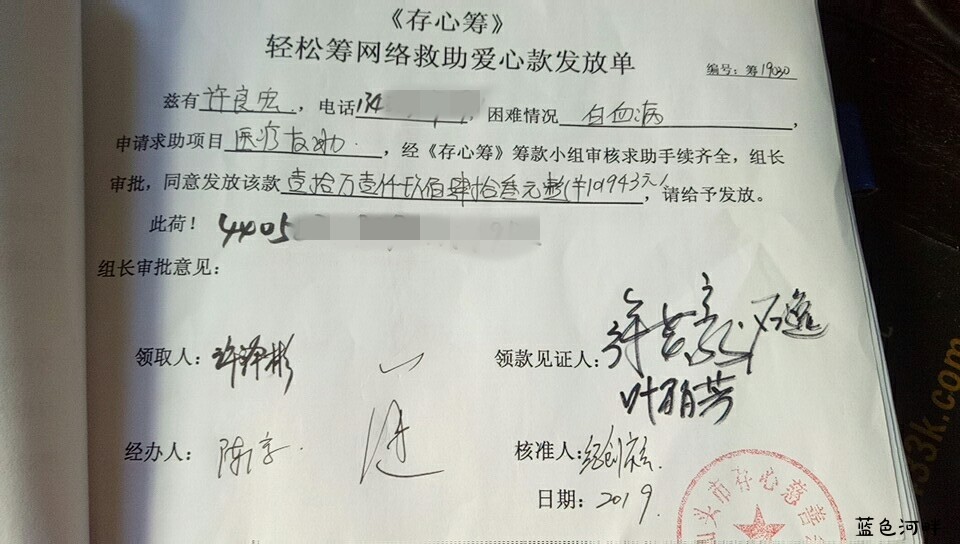 《存心筹》
轻松筹网络救助爱心款发放单
编号：筹19030
兹有许良宏，电话134，困难情况 白血病，
申请求助项目医疗救助，经《存心筹》筹款小组审核求助手续齐全，组长
审批，同意发放该款壹拾万壹仟玖佰肆拾叁元整(¥101943元)，请给予发放。
此荷！ 4405
组长审批意见：
领取人：许泽彬 领款见证人：
叶丽芳
经办人：陈 核准人：
日期：2019.
汕头市存心慈善会
蓝色河畔
33k.com